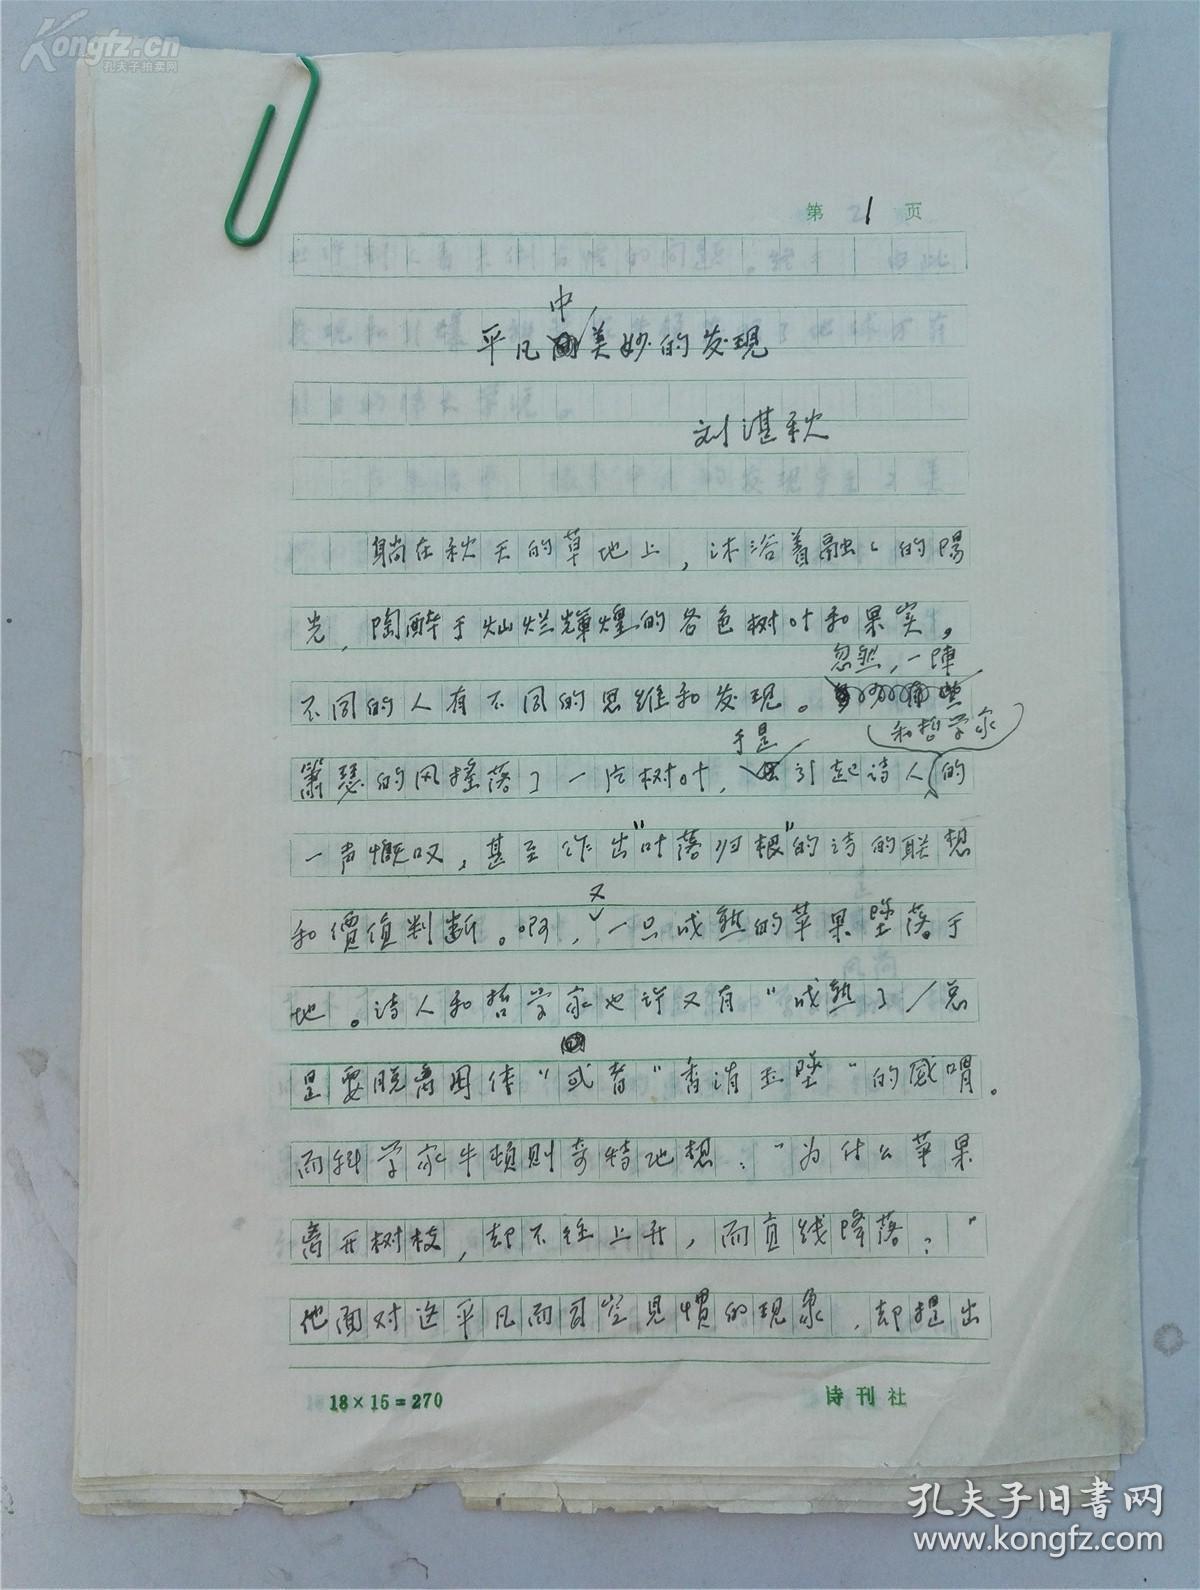 Kongfz.cn
孔夫子拍卖网
第 1 页
中
平凡美妙的发现
刘湛秋
躺在秋天的草地上，沐浴着融々的陽
光，陶醉于灿烂輝煌的各色树叶和果实，
忽然，一陣
不同的人有不同的思维和发现。
和哲学家
于是
萧瑟的风摇落了一片树叶，引起诗人的
一声慨叹，甚至作出"叶落归根"的诗的联想
又
和價值判断。啊，一只成熟的苹果坠落于
地。诗人和哲学家也许又有"成熟了/总
是要脱离母体"或者"香消玉墜"的感喟。
而科学家牛顿则奇特地想："为什么苹果
离开树枝，却不往上升，而直线降落？"
他面对这平凡而司空见惯的现象，却提出
18×15=270
诗刊社
孔夫子旧書网
www.kongfz.com